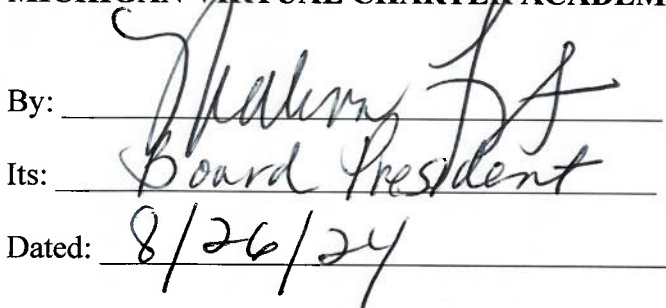 MICHIGAN VIRTUAL CHARTER ACADEM
By:
Its: Board President
Dated: 8/26/24